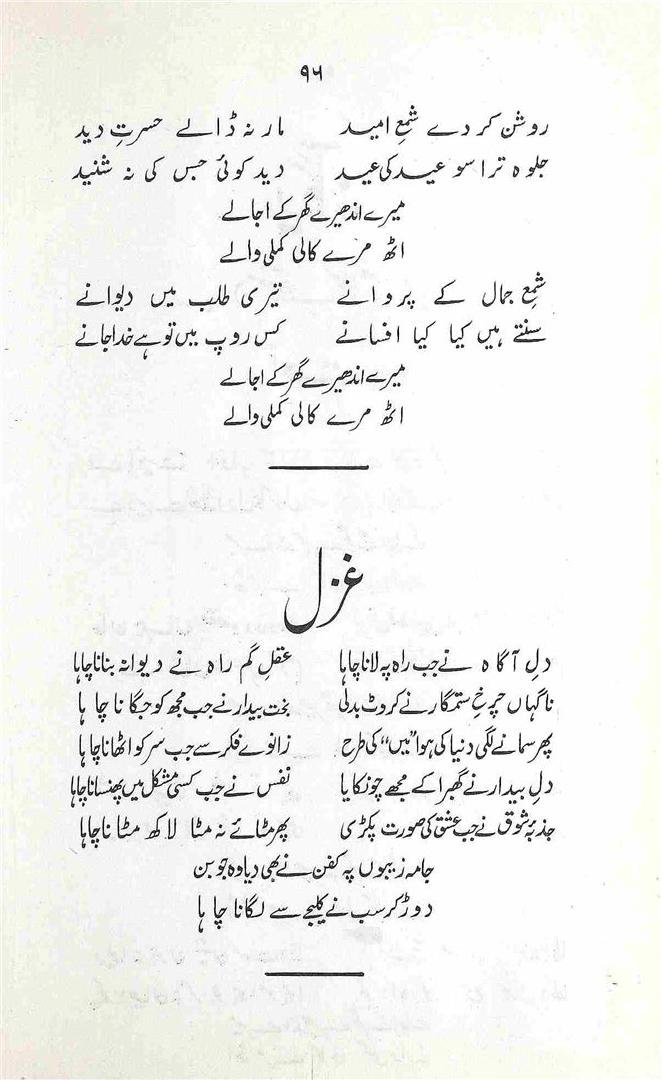 ۹۶
روشن کر دے شمعِ امید مار نہ ڈالے حسرتِ دید
جلوہ ترا سو عید کی عید دید کوئی جس کی نہ شنید
میرے اندھیرے گھر کے اجالے
اٹھ مرے کالی کملی والے
شمعِ جمال کے پروانے تیری طلب میں دیوانے
سنتے ہیں کیا کیا افسانے کس روپ میں تو ہے خدا جانے
میرے اندھیرے گھر کے اجالے
اٹھ مرے کالی کملی والے
غزل
دلِ آگاہ نے جب راہ پہ لانا چاہا عقلِ گم راہ نے دیوانہ بنانا چاہا
ناگہاں چرخِ ستمگار نے کروٹ بدلی بختِ بیدار نے جب مجھ کو جگانا چاہا
پھر سمانے لگی دنیا کی ہوا "میں" کی طرح زانوے فکر سے جب سر کو اٹھانا چاہا
دلِ بیدار نے گھبرا کے مجھے چونکایا نفس نے جب کسی مشکل میں پھنسانا چاہا
جذبۂ شوق نے جب عشق کی صورت پکڑی پھر مٹائے نہ مٹا لاکھ مٹانا چاہا
جامہ زیبوں پہ کفن نے بھی دیا وہ جوبن
دوڑ کر سب نے کلیجے سے لگانا چاہا